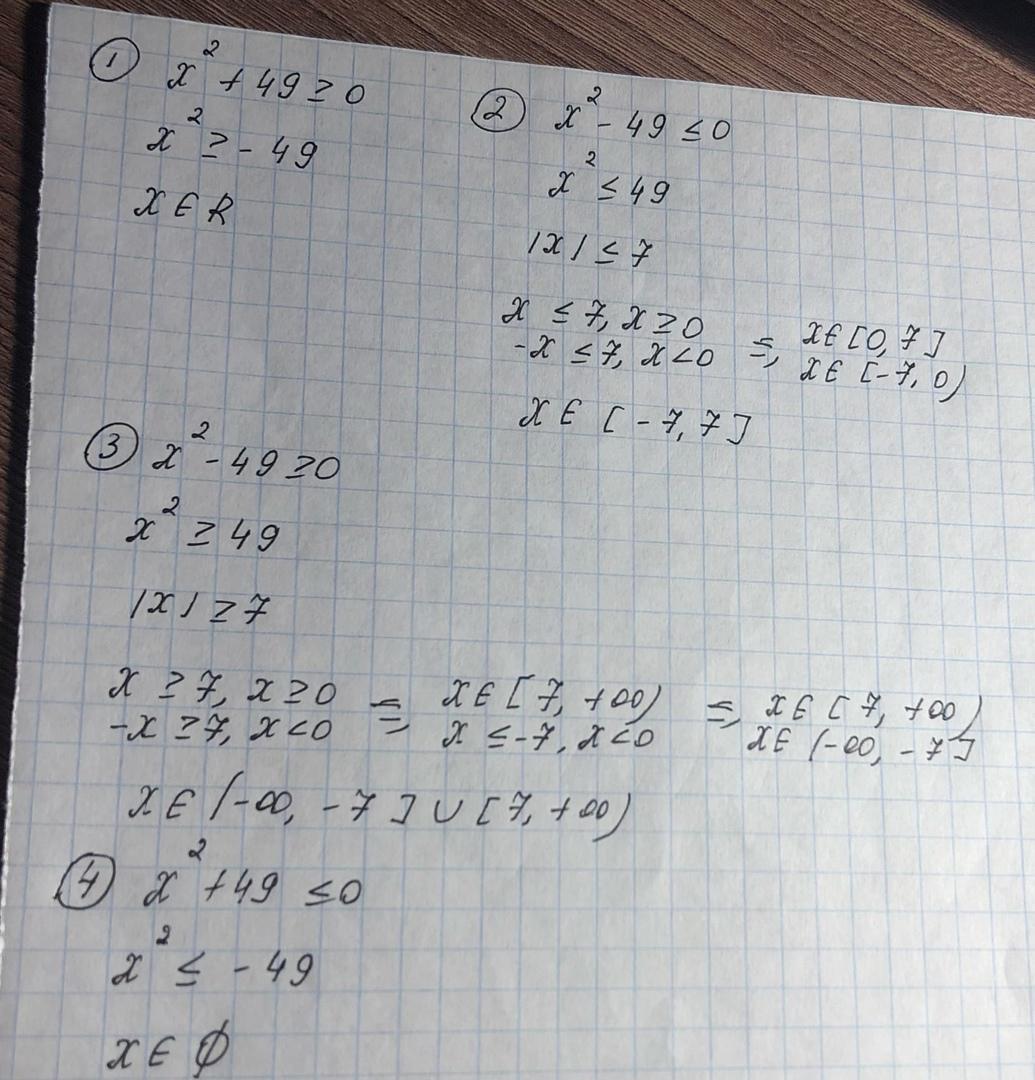 ① x² + 49 ≥ 0
x² ≥ - 49
x ∈ R
② x² - 49 ≤ 0
x² ≤ 49
|x| ≤ 7
x ≤ 7, x ≥ 0
-x ≤ 7, x < 0 =, x ∈ [0, 7]
x ∈ [-7, 0)
x ∈ [-7, 7]
③ x² - 49 ≥ 0
x² ≥ 49
|x| ≥ 7
x ≥ 7, x ≥ 0 =, x ∈ [7, +∞) =, x ∈ [7, +∞)
-x ≥ 7, x < 0 x ≤ -7, x < 0 x ∈ (-∞, -7]
x ∈ (-∞, -7] ∪ [7, +∞)
④ x² + 49 ≤ 0
x² ≤ - 49
x ∈ ∅